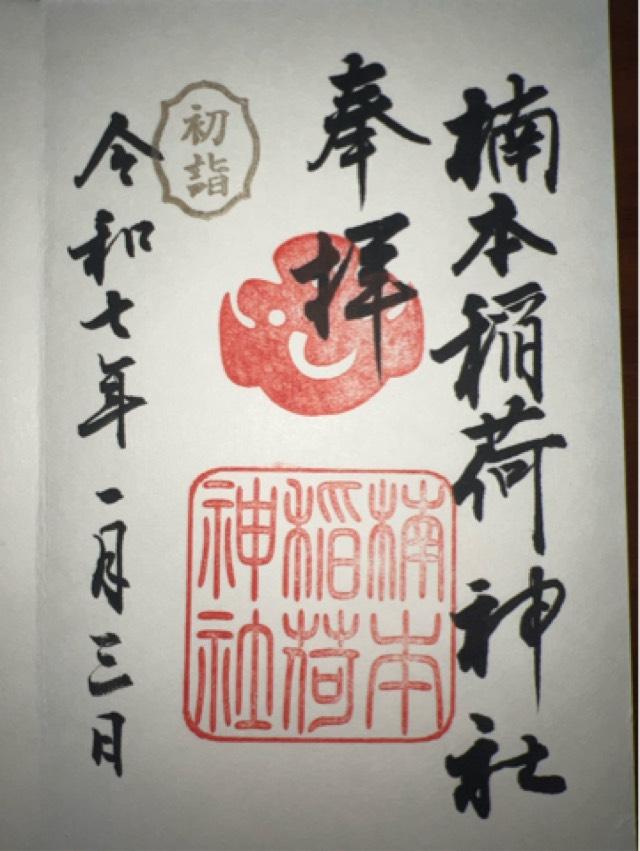 楠本稲荷神社
奉拝
初詣
令和七年一月三日
楠本
稲荷
神社